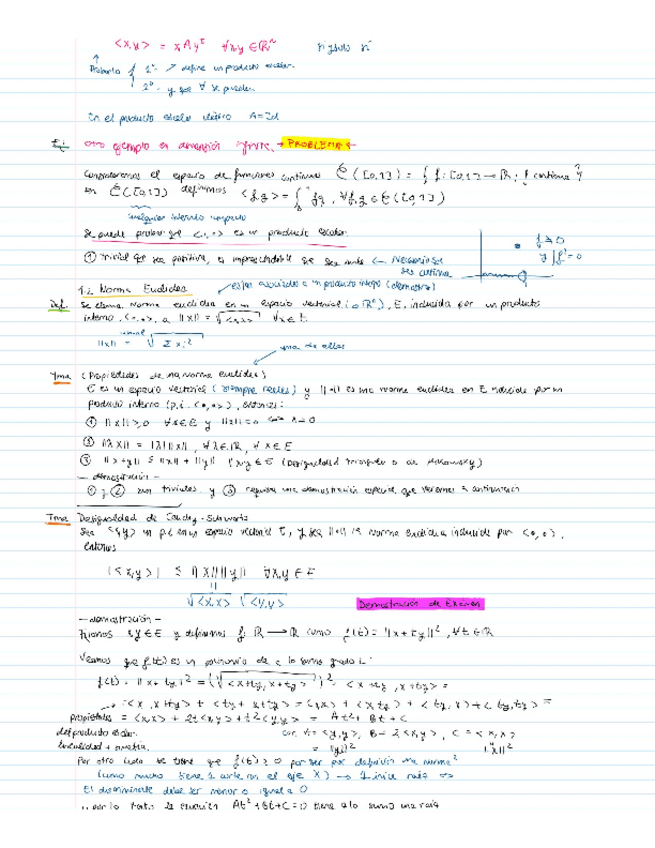 <x,y> = x A y^t ∀x,y ∈ ℝ^n
1º- → define un producto escalar.
2º- y que ∀ se pueden
En el producto escalar clásico A = Id
Ej: Otro ejemplo en dimensión → PROBLEMA
Consideramos el espacio de funciones continuas C([0,1]) = { f: [0,1] → ℝ ; f continua }
en C([0,1]) definimos <f,g> = ∫₀¹ fg, ∀f,g ∈ C([0,1])
cualquier intervalo compacto
Se puede probar que <·,·> es un producto escalar.
① Trivial que sea positiva, es que sea nula ← Necesario que sea continua
f ≠ 0
y ∫f² = 0
1.2. Norma Euclídea
están asociadas a un producto interno (alternativa)
Def. Se llama Norma euclídea en un espacio vectorial (o ℝ^n), E, inducida por un producto
interno, <·,·>, a ||x|| = √<x,x> ∀x ∈ E.
||x|| = √Σ xi²
una de ellas
Tma (Propiedades de una norma euclídea)
E es un espacio vectorial (siempre reales) y ||·|| es una norma euclídea en E inducida por un
producto interno (p.i. <·,·>), entonces:
① ||x|| ≥ 0 ∀x∈E y ||x|| = 0 <=> x = 0
② ||λx|| = |λ| ||x||, ∀λ∈ℝ, ∀x∈E
③ ||x+y|| ≤ ||x|| + ||y|| ∀x,y ∈ E (Desigualdad triangular o de Minkowsky)
— demostración —
① y ② son triviales y ③ requiere una demostración especial, que veremos a continuación
Tma Desigualdad de Cauchy-Schwartz
Sea <x,y> un p.i en un espacio vectorial E, y sea ||·|| la norma Euclídea inducida por <·,·>,
entonces
|<x,y>| ≤ ||x|| ||y|| ∀x,y ∈ E
√<x,x> √<y,y>
Demostración de Examen
— demostración —
Fijamos x,y ∈ E y definimos f: ℝ → ℝ como f(t) = ||x + ty||², ∀t ∈ ℝ
Veamos que f(t) es un polinomio de a lo sumo grado 2.
f(t) = ||x + ty||² = (√<x+ty, x+ty>)² = <x+ty, x+ty> =
= <x, x+ty> + <ty, x+ty> = <x,x> + <x,ty> + <ty,x> + <ty,ty> =
propiedades = <x,x> + 2t<x,y> + t²<y,y> = At² + Bt + C
del producto escalar. con A = <y,y>, B = 2<x,y>, C = <x,x>
linealidad + simetría. = ||y||² ||x||²
Por otro lado se tiene que f(t) ≥ 0 por ser por definición una norma²
(como mucho tiene 1 corte con el eje X) → 1 única raíz =>
El discriminante debe ser menor o igual a 0
∴ por lo tanto la ecuación At² + Bt + C = 0 tiene a lo sumo una raíz